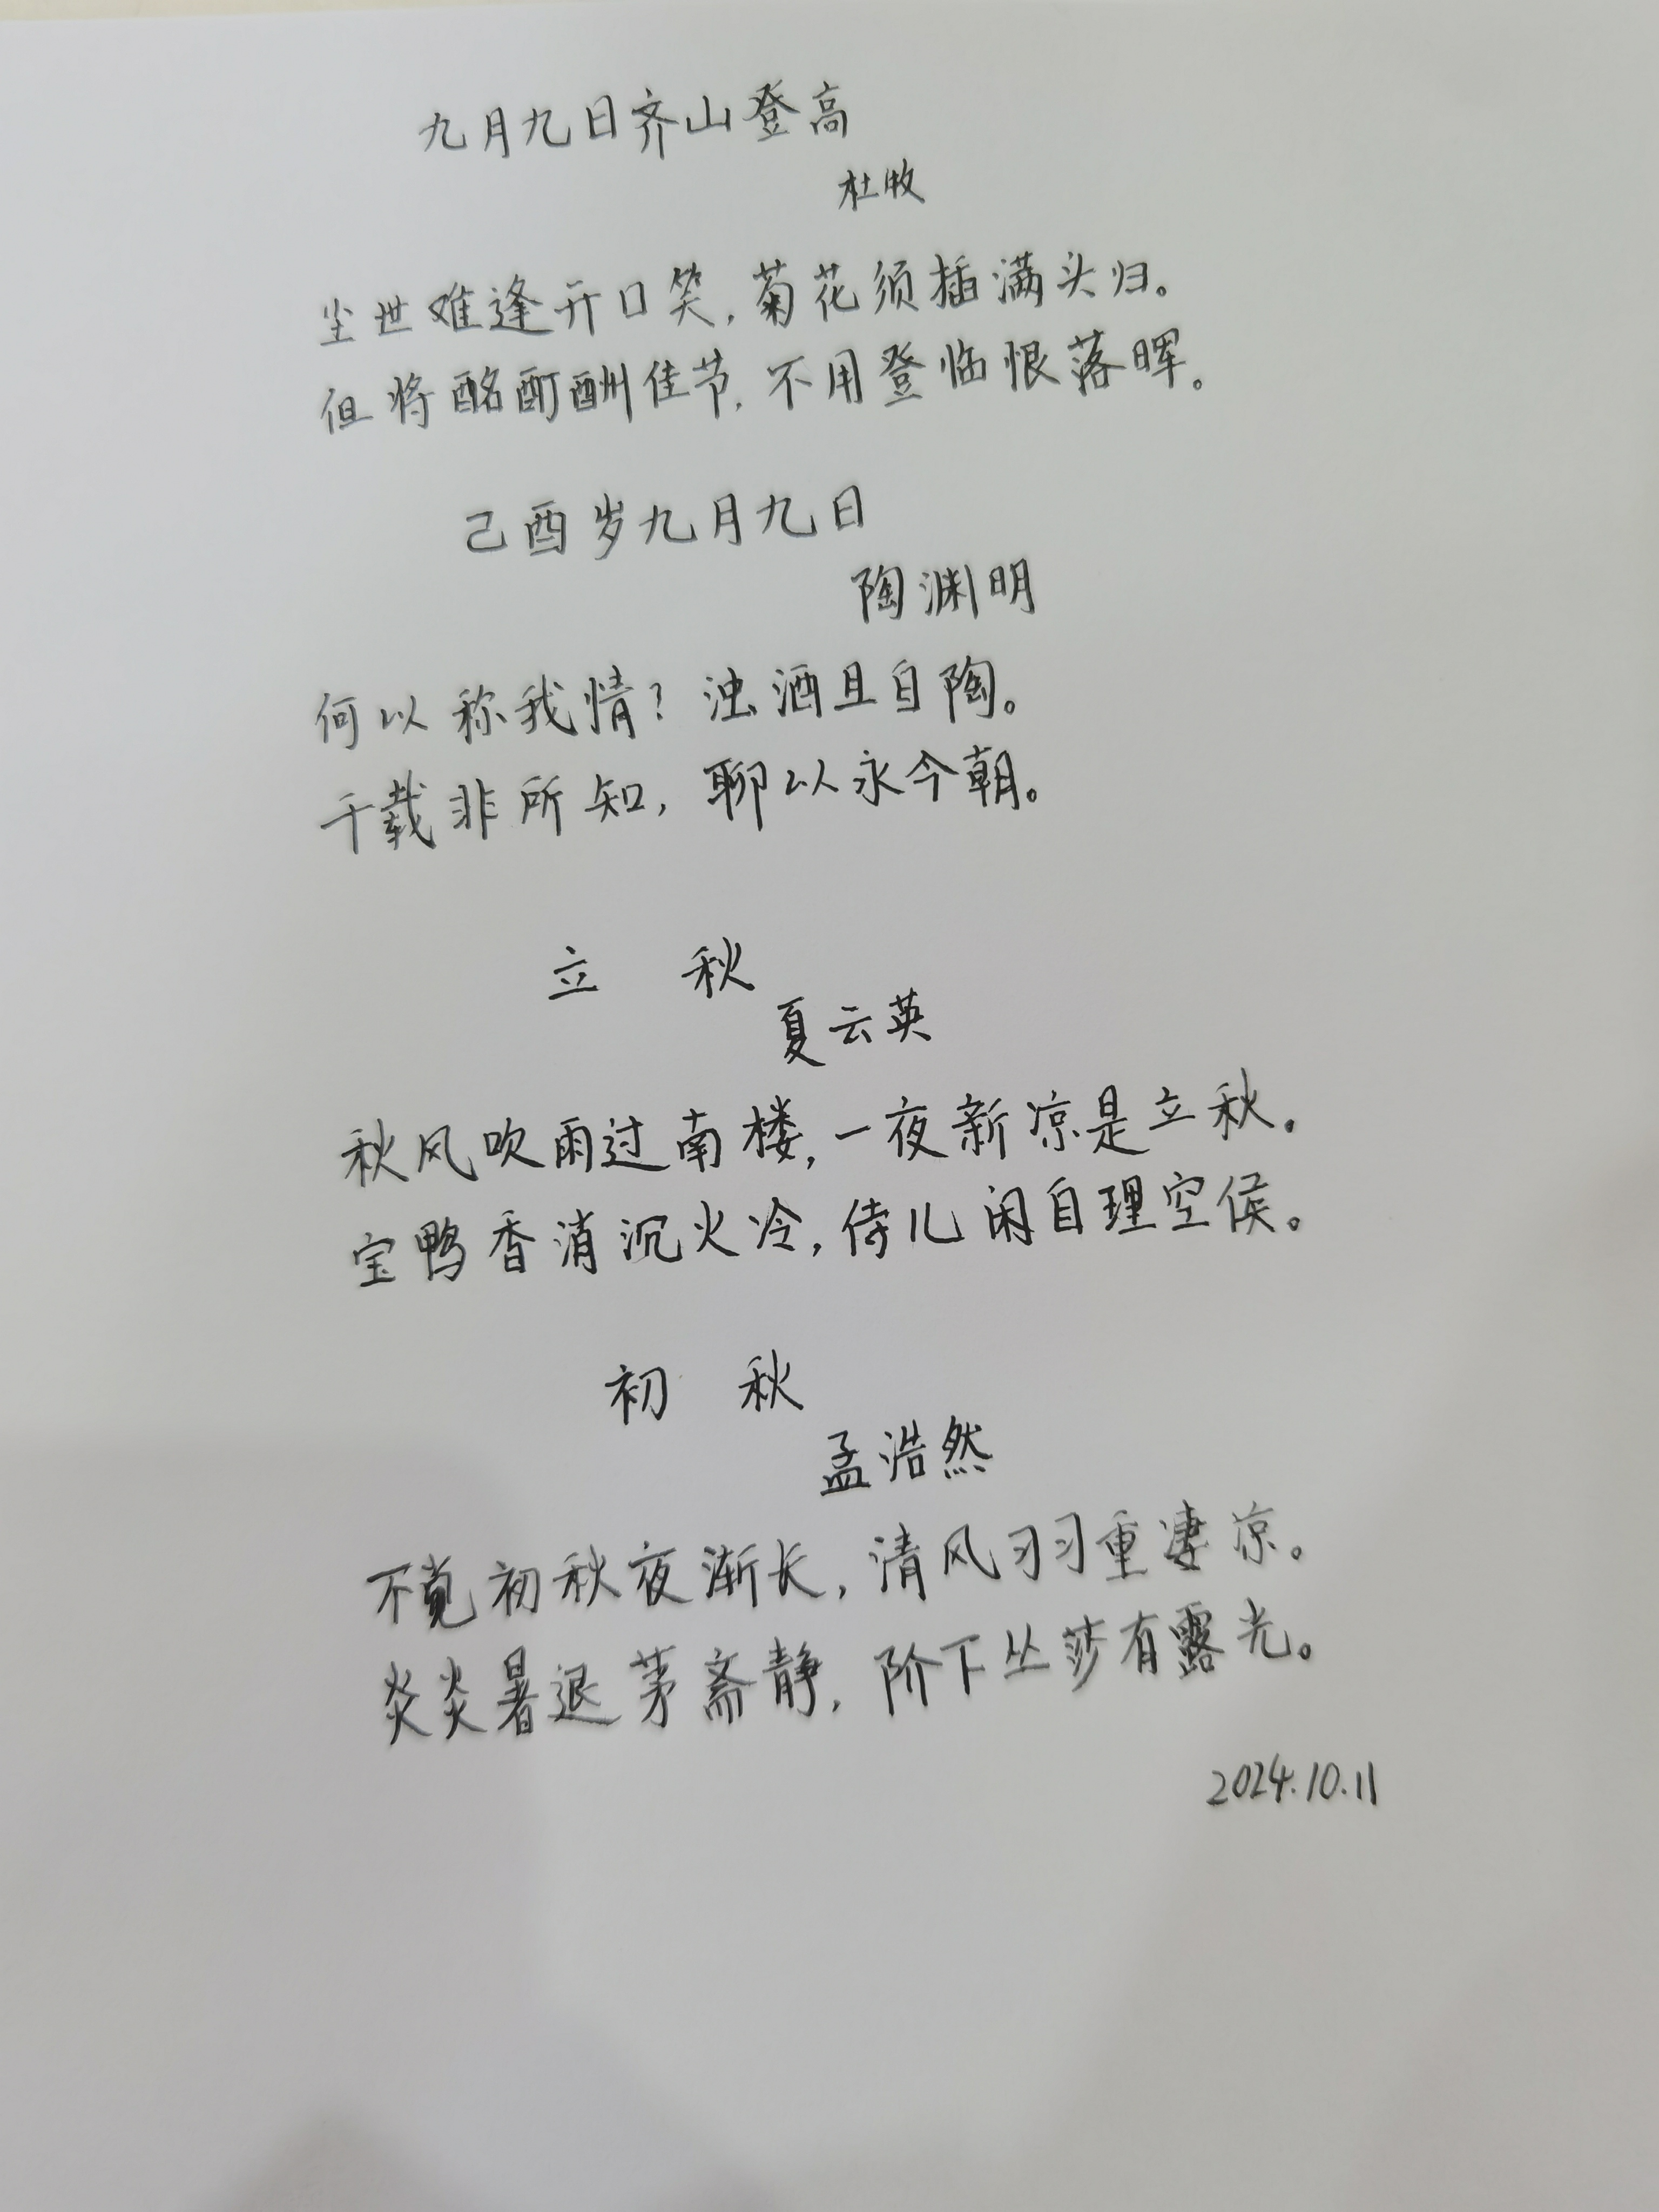 九月九日齐山登高
杜牧
尘世难逢开口笑,菊花须插满头归。
但将酩酊酬佳节,不用登临恨落晖。
己酉岁九月九日
陶渊明
何以称我情?浊酒且自陶。
千载非所知,聊以永今朝。
立 秋
夏云英
秋风吹雨过南楼,一夜新凉是立秋。
宝鸭香消沉火冷,侍儿闲自理空侯。
初 秋
孟浩然
不觉初秋夜渐长,清风习习重凄凉。
炎炎暑退茅斋静,阶下丛莎有露光。
2024.10.11